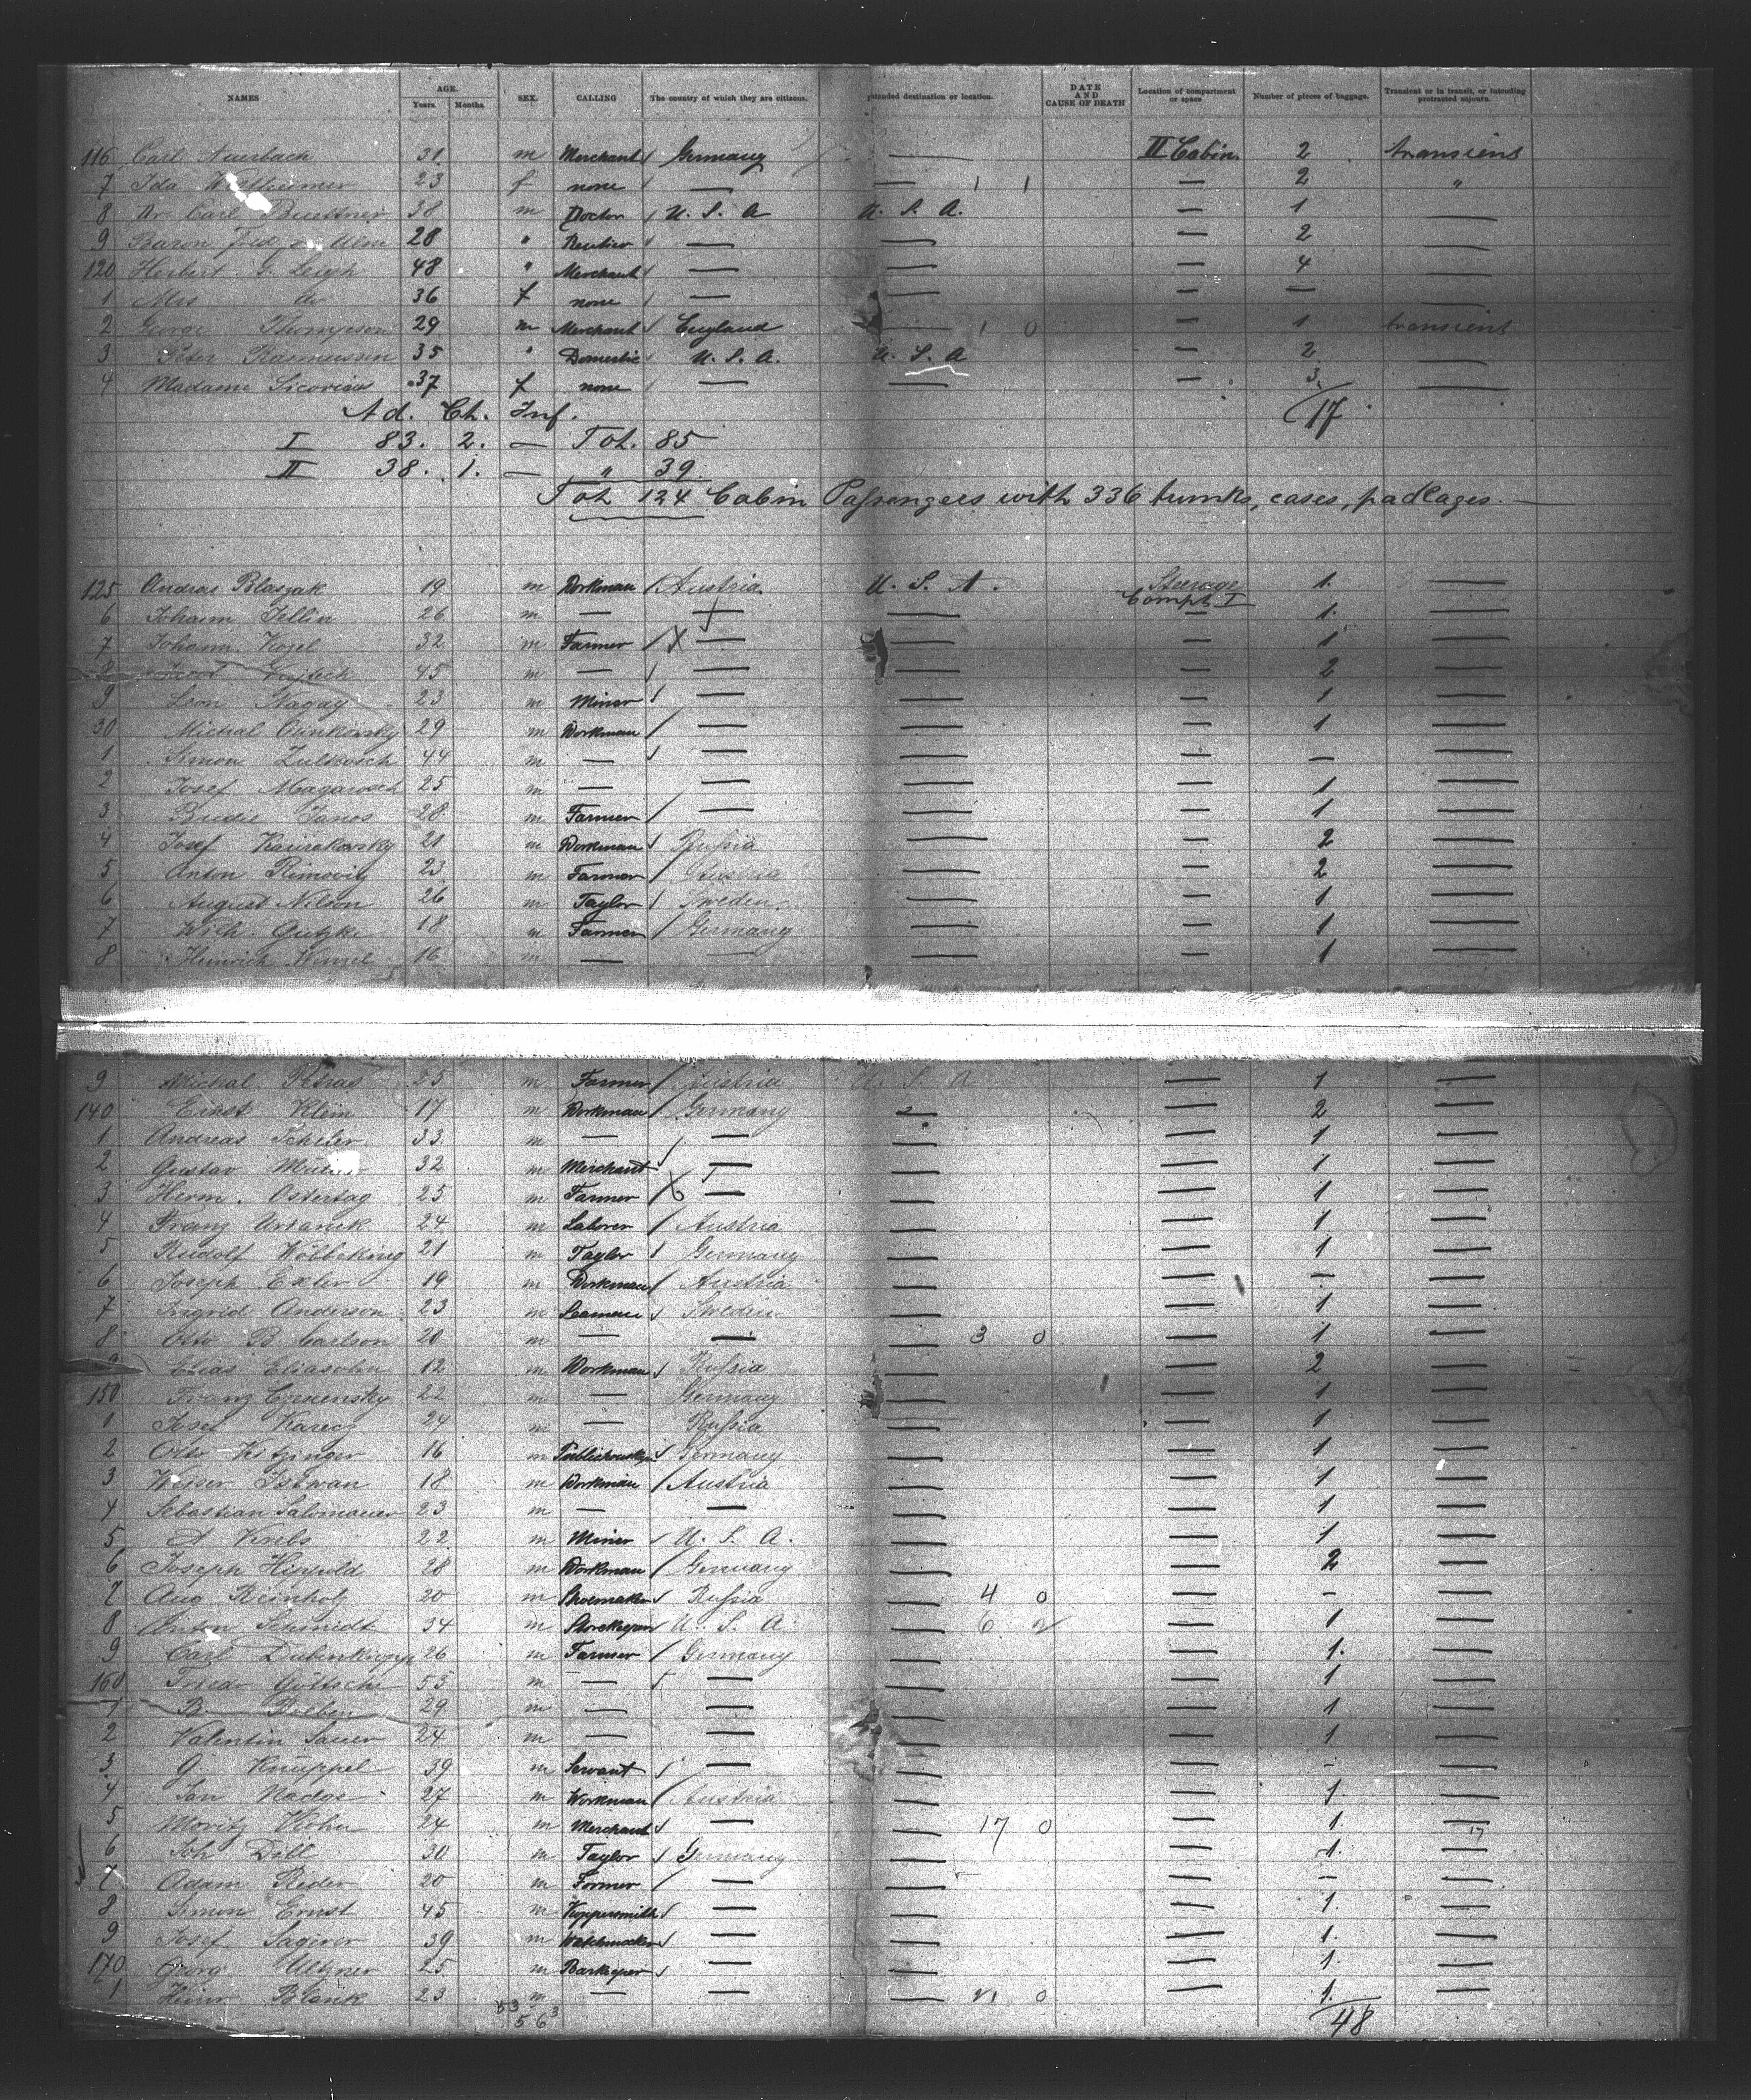 NAMES AGE. Years. Months. SEX. CALLING The country of which they are citizens. Intended destination or location. DATE AND CAUSE OF DEATH Location of compartment or space Number of pieces of baggage. Transient or in transit, or intending protracted sojourn.
116 Carl Auerbach 31 m Merchant Germany — II Cabin. 2 transient
7 Ida 23 f none — — 1 1 — 2 "
8 Dr Carl Buettner 38 m Doctor U. S. A U. S. A. — 1 —
9 Baron Fred. v. Ulm 28 " Rentier — — — 2 —
120 Herbert G. Leigh 48 " Merchant — — — 4 —
1 Mrs do 36 f none — — — — —
2 George Thompson 29 m Merchant England — 1 0 — 1 transient
3 Peter Rasmussen 35 " Domestic U. S. A. U. S. A — 2 —
4 Madame 37 f none — — — 3 —
Ad. Ch. Inf. 17
I 83. 2. — Tot. 85
II 38. 1. — " 39
Tot 124 Cabin Passengers with 336 trunks, cases, packages. —
125 Andras Blaszak 19 m Workman Austria. U. S. A. Steerage Compt I 1. —
6 Johann Jellin 26 m — — — — 1. —
7 Johann Kozel 32 m Farmer — — — 1 —
8 45 m — — — — 2 —
9 Leon Nagay 23 m Miner — — — 1 —
30 Michal 29 m Workman — — — 1 —
1 Simon 44 m — — — — — —
2 Josef 25 m — — — — 1 —
3 Budie Janos 28 m Farmer — — — 1 —
4 Josef 21 m Workman Russia — — 2 —
5 Anton Rimovig 23 m Farmer Austria — — 2 —
6 August Nilson 26 m Taylor Sweden. — — 1 —
7 Wilh. Gutzke 18 m Farmer Germany — — 1 —
8 Heinrich 16 m — — — — 1 —
9 Michal Petras 25 m Farmer Austria U. S. A — 1 —
140 Ernst Klein 17 m Workman Germany — — 2 —
1 Andreas 33 m — — — — 1 —
2 Gustav 32 m Merchant — — — 1 —
3 Herm. Ostertag 25 m Farmer — — — 1 —
4 Franz Ursanek 24 m Laborer Austria — — 1 —
5 Rudolf 21 m Taylor Germany — — 1 —
6 Joseph Exler 19 m Workman Austria — — — —
7 Ingrid Anderson 23 m Seaman Sweden — — 1 —
8 Otto B Carlson 20 m — — — 3 0 — 1 —
9 Elias Eliasohn 12 m Workman Russia — — 2 —
150 Franz 22 m — Germany — — 1 —
1 Josef 24 m — Russia — — 1 —
2 Otto Kitzinger 16 m Germany — — 1 —
3 Weiser Istwan 18 m Workman Austria — — 1 —
4 Sebastian Salomauer 23 m — — — — 1 —
5 A Krebs 22 m Miner U. S. A. — — 1 —
6 Joseph 28 m Workman Germany — — 2 —
7 Aug Reinholz 20 m Shoemaker Russia — 4 0 — — —
8 Anton Schmidt 34 m Storekeeper U. S. A. — 6 2 — 1 —
9 Carl 26 m Farmer Germany — — 1. —
160 Friedr Göttsche 55 m — — — — 1 —
1 B. 29 m — — — — 1 —
2 Valentin Sauer 24 m — — — — 1 —
3. G. Knüppel 39 m Servant — — — — —
4 Jan Nados 27 m Workman Austria — — 1. —
5 Moritz Kohn 24 m Merchant — — 17 0 — 1. — 17
6 Joh Dill 30 m Taylor Germany — — 1. —
7 Adam Rider 20 m Farmer — — — — —
8 Simon Ernst 45 m Koppersmith — — — 1. —
9 Josef Sagerer 39 m Watchmacker — — — 1. —
170 Georg 25 m Barkeeper — — — 1. —
1 Heinr Blank 23 m — — — 21 0 — 1. —
53 56 3 48